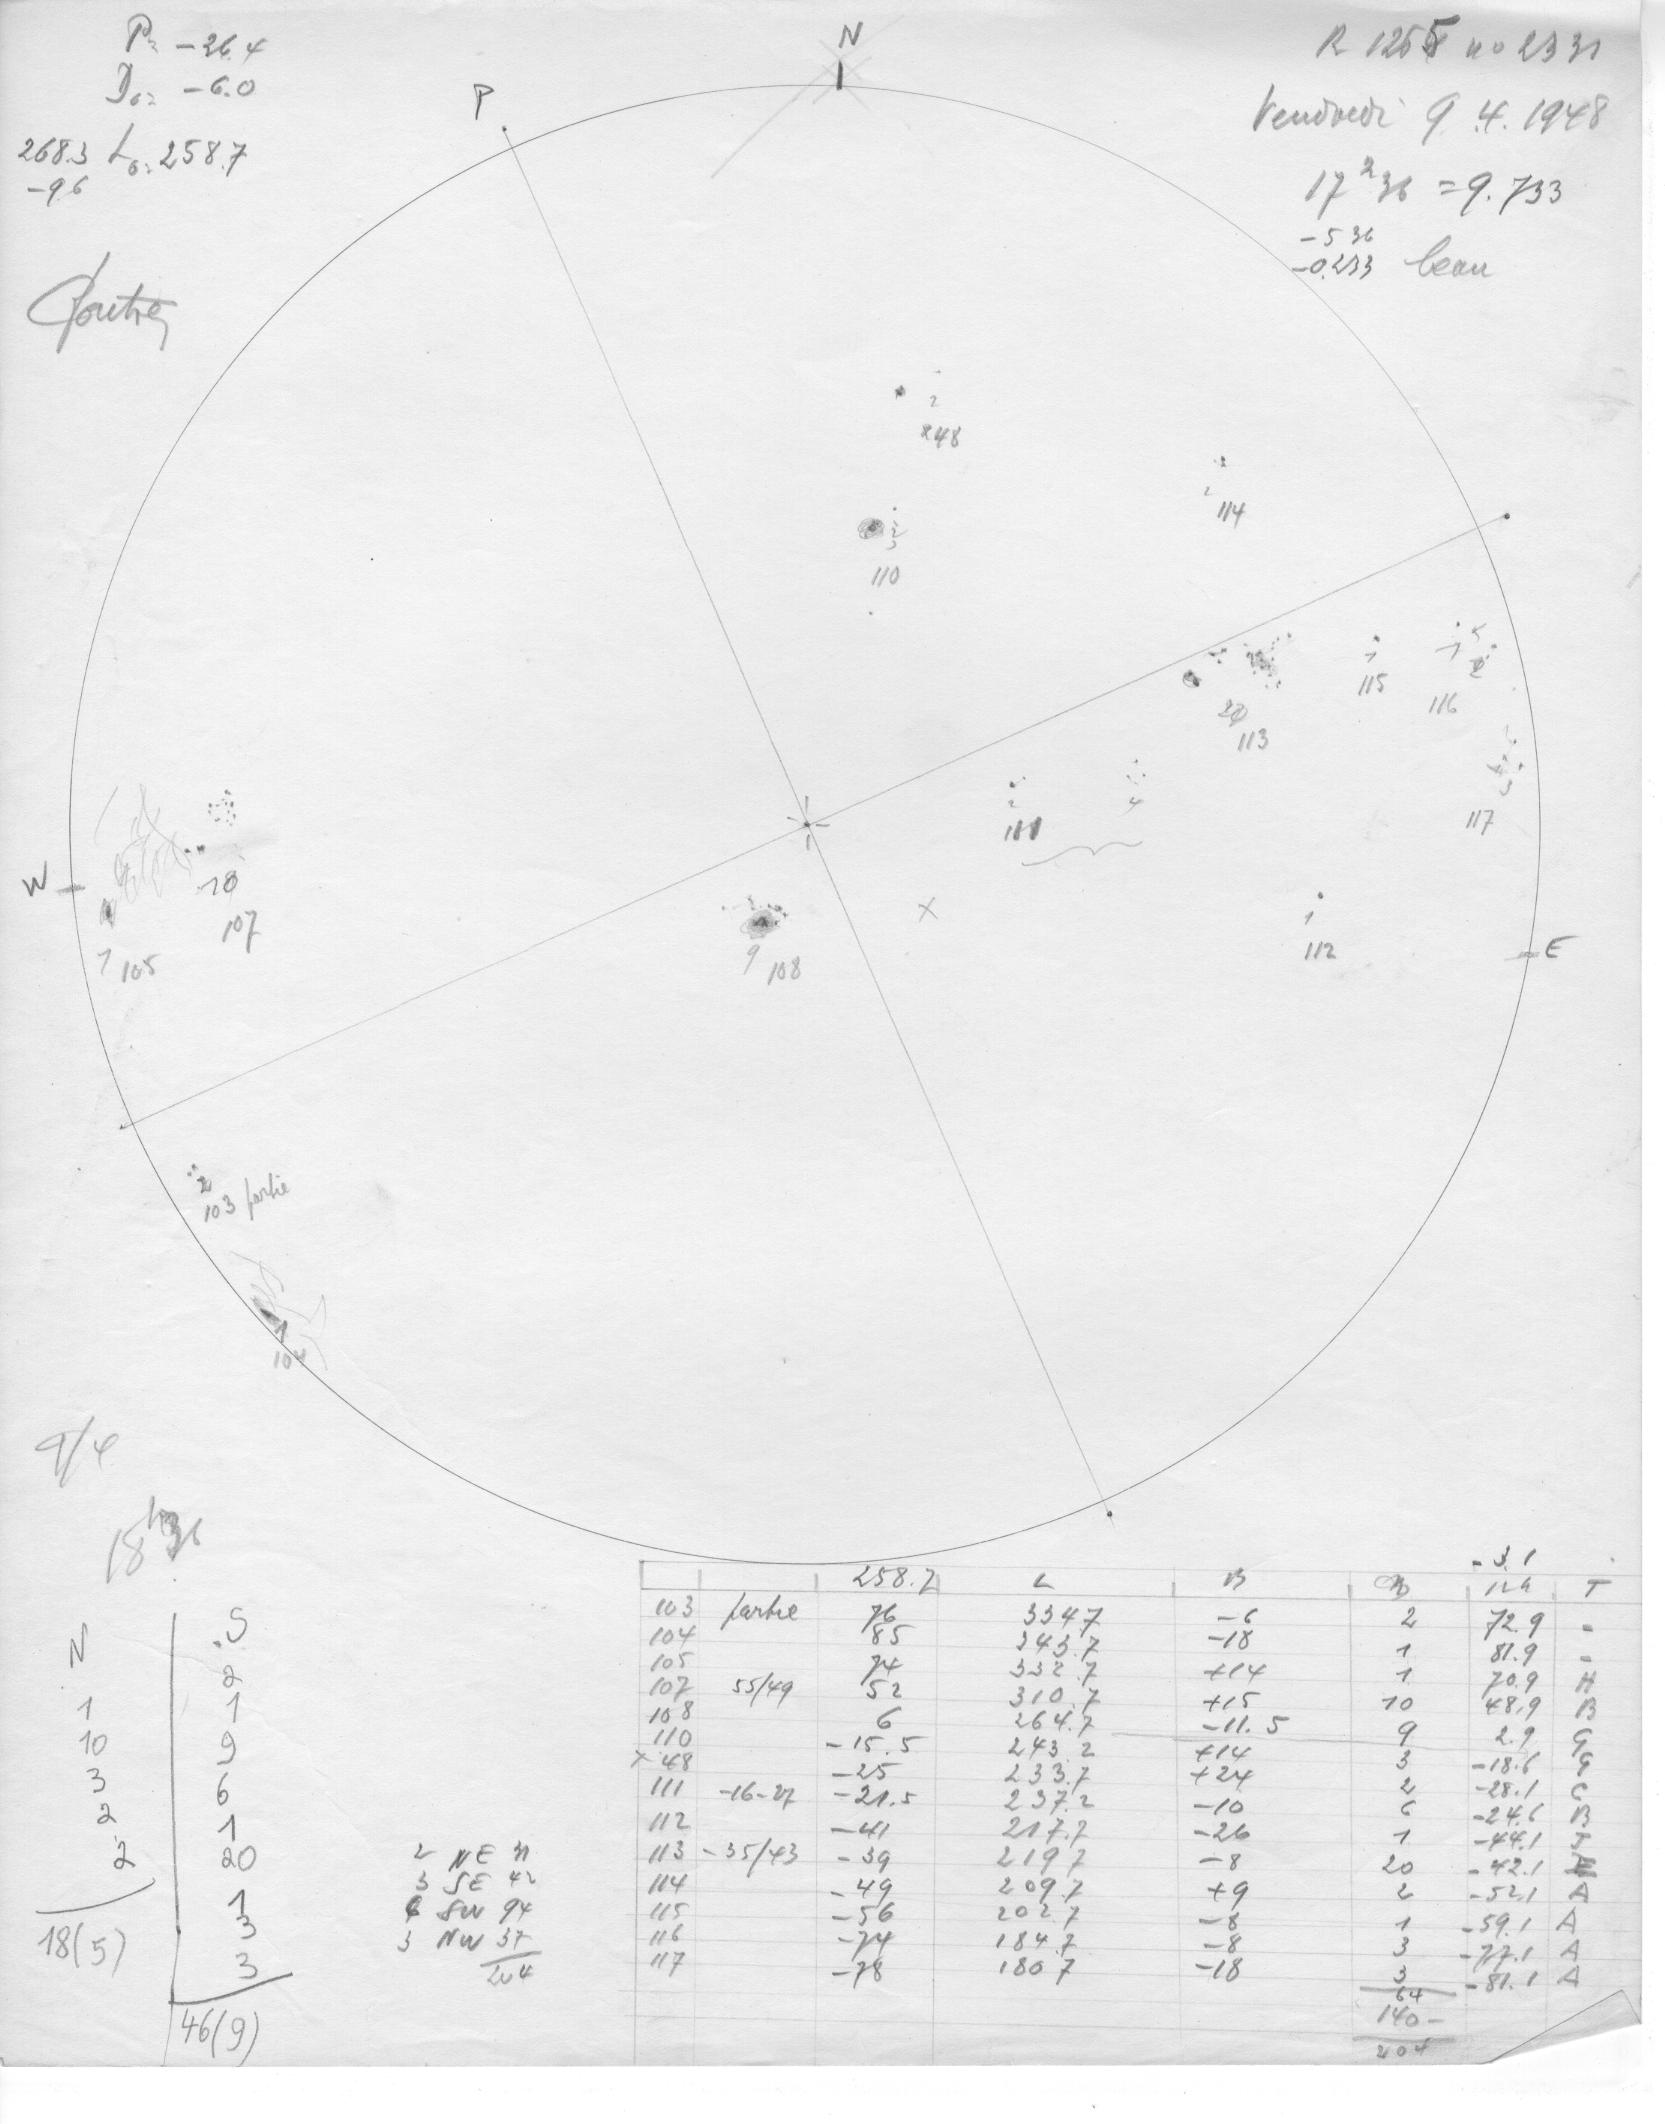 P= -26.4
D0= -6.0
268.3 L0= 258.7
-9.6
N
P
R 1255 no 2331
Vendredi 9.4.1948
17h36 = 9.733
-5 36
-0.233 beau
2
x48
2
114
2
3
110
1
115
5
1
2
116
20
113
2
111
4
4
3
117
W
10
107
1 105
9 108
1
112
E
2
103 partie
1
104
9/4
18h36
258.7 L B T
-3.1
103 partie 76 334.7 -6 2 72.9 -
104 85 343.7 -18 1 81.9 -
105 74 332.7 +14 1 70.9 H
107 55/49 52 310.7 +15 10 48.9 B
108 6 264.7 -11.5 9 2.9 G
110 -15.5 243.2 +14 3 -18.6 G
x48 -25 233.7 +24 2 -28.1 C
111 -16-27 -21.5 237.2 -10 6 -24.6 B
112 -41 217.7 -26 1 -44.1 J
113 -35/43 -39 219.7 -8 20 -42.1 E
114 -49 209.7 +9 2 -52.1 A
115 -56 202.7 -8 1 -59.1 A
116 -74 184.7 -8 3 -77.1 A
117 -78 180.7 -18 3 -81.1 A
64
140-
204
N
1
10
3
2
2
18(5)
S
2
1
9
6
1
20
1
3
3
46(9)
2 NE 31
3 SE 42
6 SW 94
3 NW 37
204